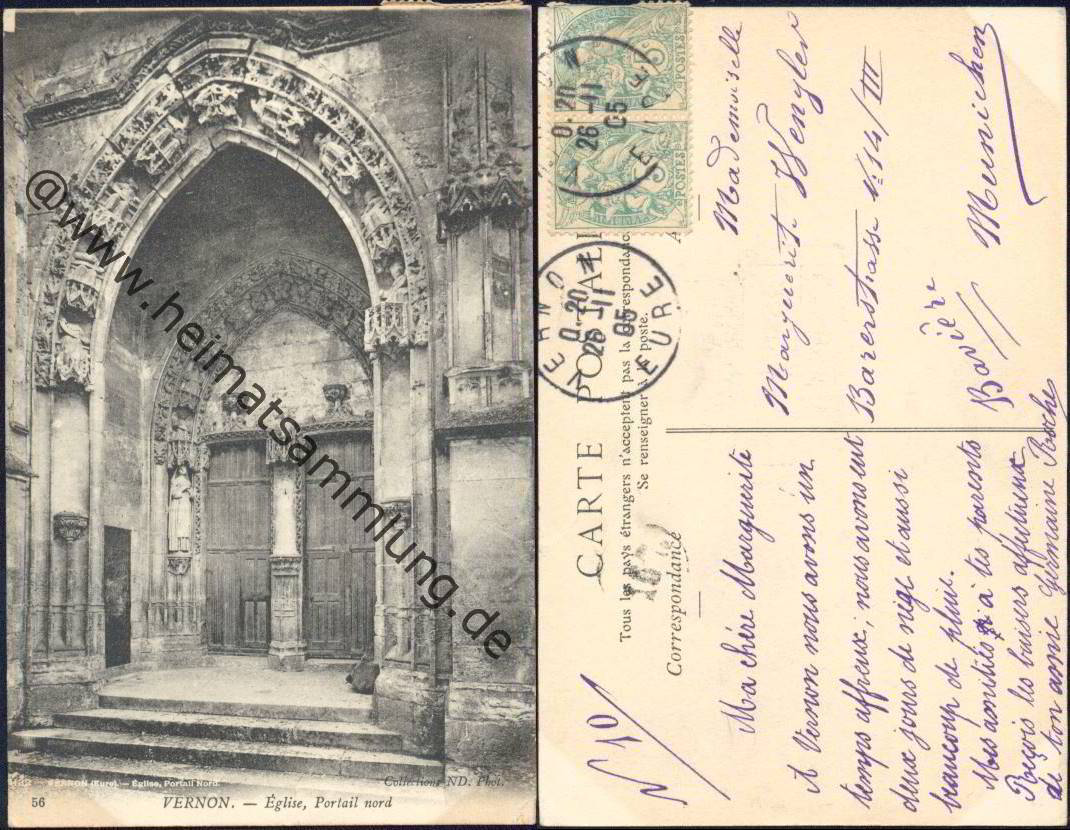 @www.heimatsammlung.de
VERNON (Eure). — Église, Portail Nord.
Collections ND. Phot.
56
VERNON. — Église, Portail nord
CARTE POSTALE
Tous les pays étrangers n'acceptent pas la correspondance
Se renseigner à la poste.
Correspondance
A
POSTES
POSTES
VERNON
0.20
26-11
05
EURE
VERNON
0.20
26-11
05
EURE
107
Mademoiselle
Marguerite Wengler
Barerstrasse Nº 14/III
Muenichen
Bavière
N 10
Ma chère Marguerite
A Vernon nous avons un
temps affreux; nous avons eut
deux jours de neige et aussi
beaucoup de pluie.
Mes amitiés à tes parents
Reçois les baisers affectueux
de ton amie Germaine Roche